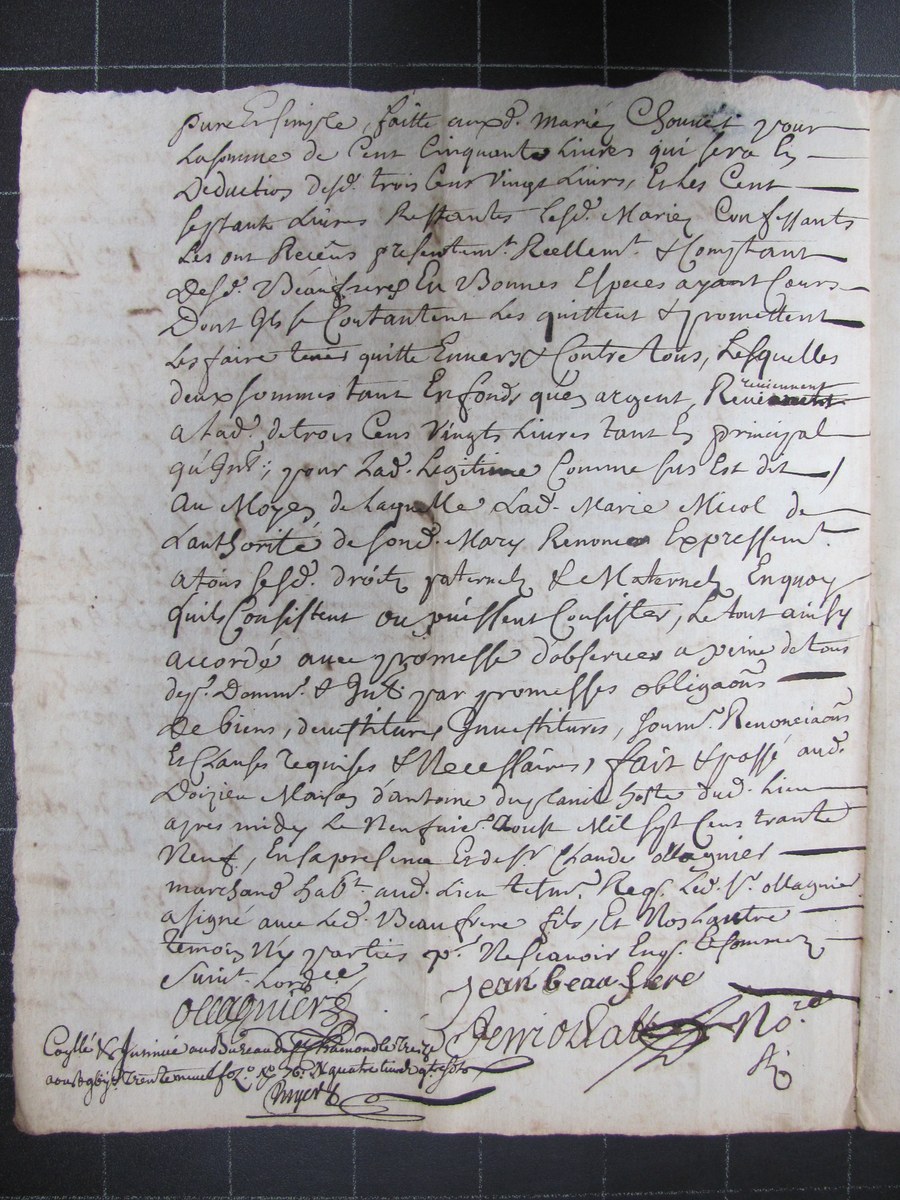 pure Et simple, faitte auxd. mariés Chouvet pour
La somme de Cent Cinquante Livres qui sera En
Deduction desd. trois Cens Vingt Livres, Et Les Cent
septante Livres Restantes Lesd. Mariés Confessants
Les ont Receus presentemt. Reellemt. & Comptant
Desd. Beaufreres En Bonnes Especes ayant Cours
Dont Ils se Contantent Les quittent & promettent
Les faire tenir quitte Envers & Contre tous, Lesquelles
deux sommes tant En fonds qu'en argent, reviennent
a Lad. de trois Cens Vingts Livres tant En principal
qu'Int., pour Lad. Legitime Comme sus Est dit
Au Moyen de Laquelle Lad. Marie Nicol de
L'authorité de sond. Mary Renonce Expressemt.
a tous sesd. droits paternels & Maternels En quoy
quils Consistent ou puissent Consister, Le tout ainsy
accordé avec promesse d'observer a peine de tous
desp. Domm. & Int. par promesses obligaons
de biens, devestitures Investitures, soum. Renonciaons
Et Clauses requises & Necessaires, fait & passé aud.
Doizieu Maison d'antoine hoste dud. Lieu
apres midy Le Neufvie. Aoust Mil sept Cens trante
Neuf, En la presence Et de sr. Claude ollagnier
marchand habt. aud. Lieu Req. Led. sr. ollagnier
a signé avec Led. Beaufrere fils, Et Non L'autre
temoin Ny parties pr. Ne scavoir Enq. Et sommez
suivt. Lordce
ollagnier Jean beaufrere
No. Rl
Conllé & Insinué au Bureau de St Chamond le treize
aoust trente neuf fo. 36. R quatre livres